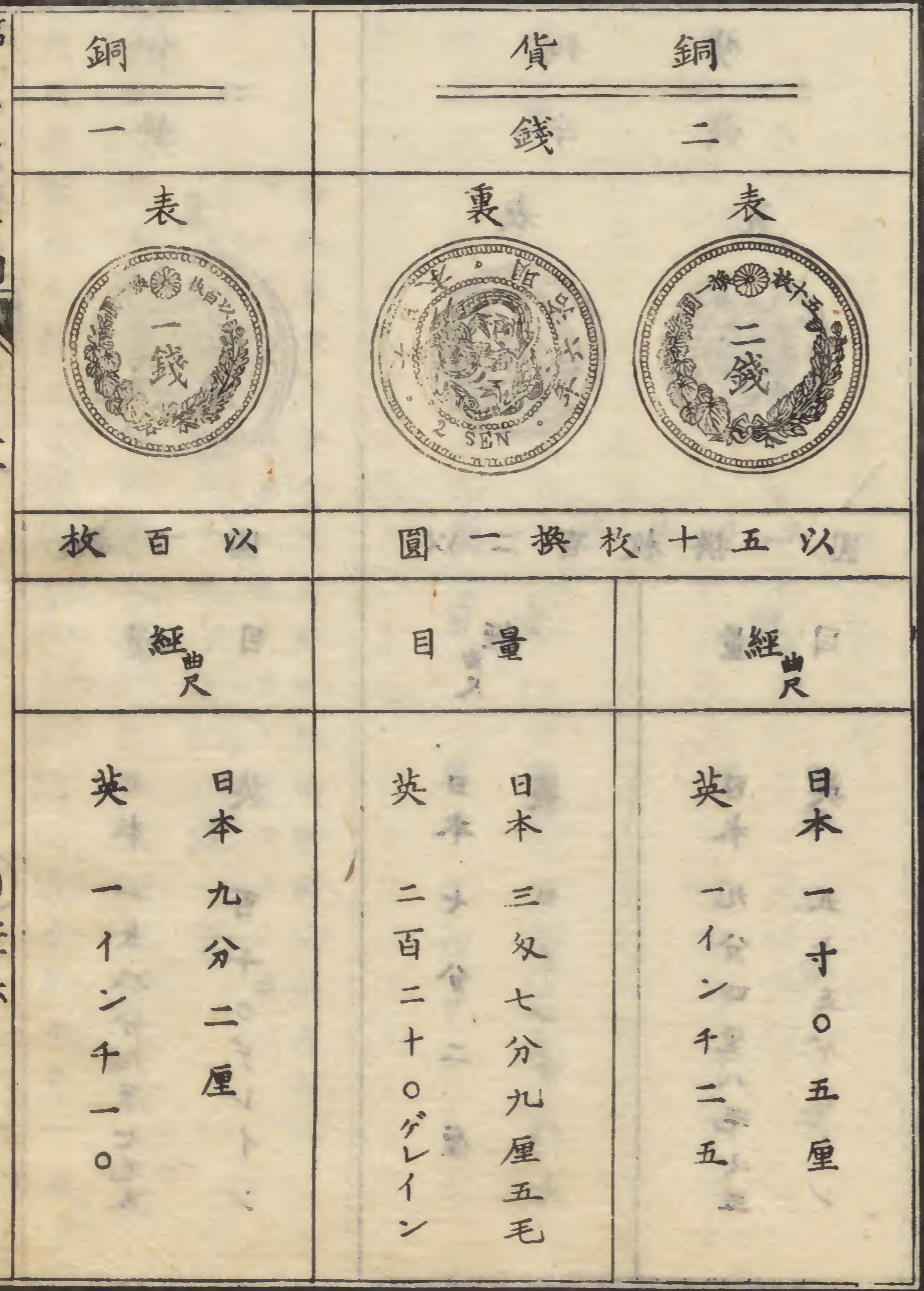 銅貨
二錢
表
五十枚換一圓
二錢
裏
2 SEN
以五十枚換一圓
經曲尺
日本 一寸〇五厘
英 一インチ二五
量目
日本 三匁七分九厘五毛
英 二百二十〇ゲレイン
銅
一
表
以百枚換一圓
一錢
以百枚
經曲尺
日本 九分二厘
英 一インチ一〇